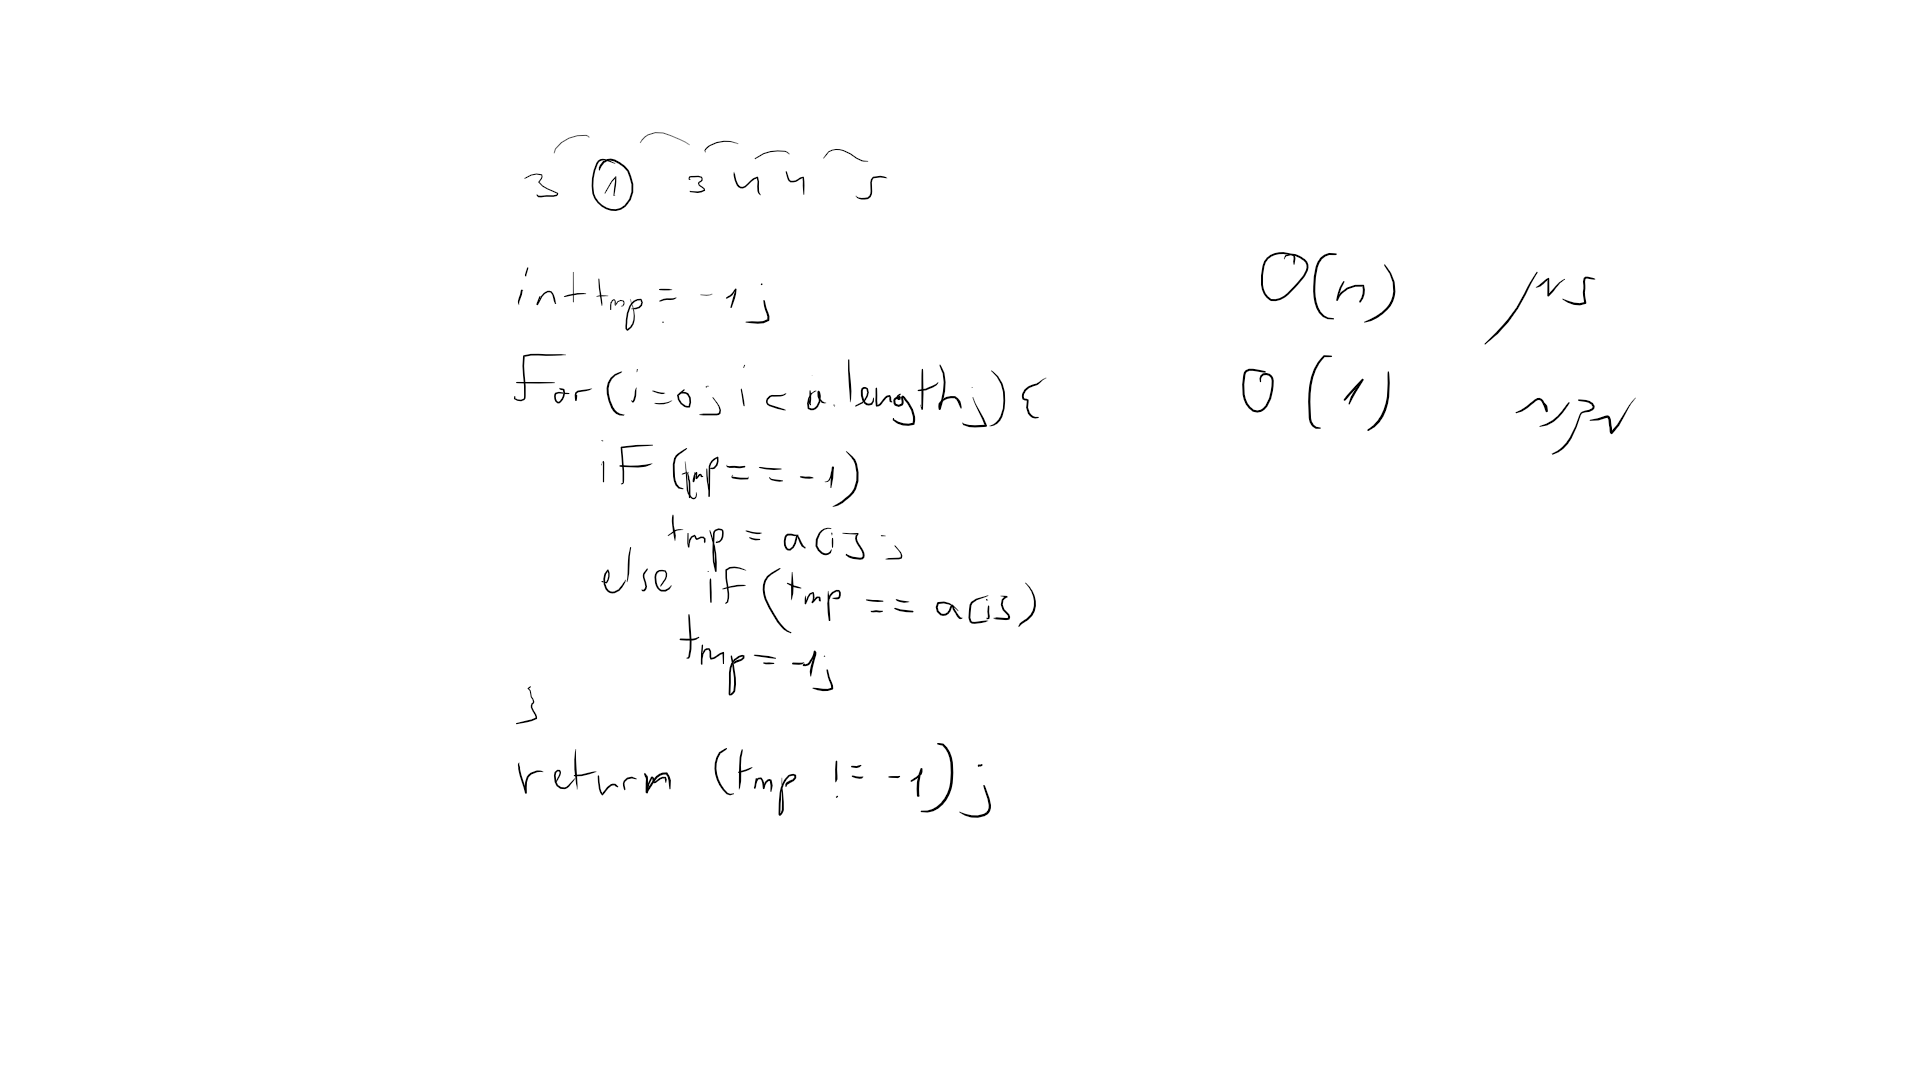 3 1 3 4 4 5
int tmp = -1;
For (i=0; i < a.length;) {
iF (tmp == -1)
tmp = a[i];
else iF (tmp == a[i])
tmp = -1;
}
return (tmp != -1);
O(n)
O(1)